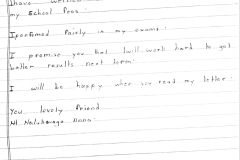 I have
my School fees.
I performed fairly in my exams.
I promise you that I will work hard to get
better results next term.
I will be happy when you read my letter.
You lovely friend